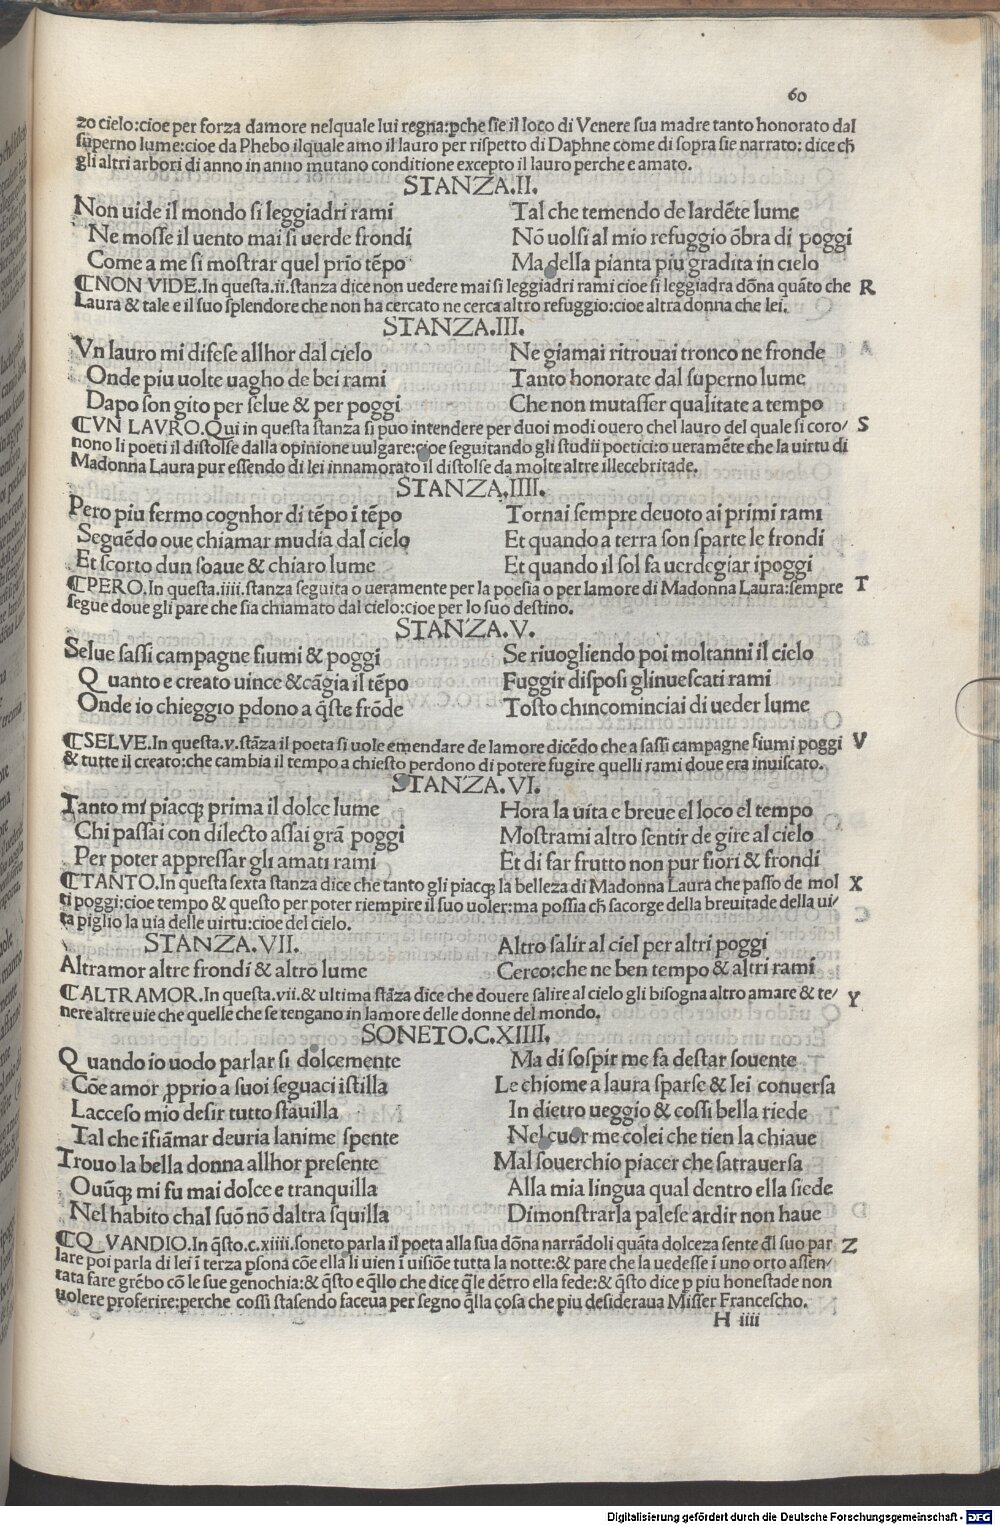 60
zo cielo:cioe per forza damore nelquale lui regna:ꝑche sie il loco di Venere sua madre tanto honorato dal
superno lume:cioe da Phebo ilquale amo il lauro per rispetto di Daphne come di sopra sie narrato: dice ch̄
gli altri arbori di anno in anno mutano conditione excepto il lauro perche e amato.
STANZA.II.
Non uide il mondo si leggiadri rami
Ne mosse il uento mai si uerde frondi
Come a me si mostrar quel prīo tēpo
Tal che temendo de lardēte lume
Nō uolsi al mio refuggio ōbra di poggi
Ma della pianta piu gradita in cielo
¶NON VIDE.In questa.ii.stanza dice non uedere mai si leggiadri rami cioe si leggiadra dōna quāto che R
Laura & tale e il suo splendore che non ha cercato ne cerca altro refuggio:cioe altra donna che lei.
STANZA.III.
Vn lauro mi difese allhor dal cielo
Onde piu uolte uagho de bei rami
Dapo son gito per selue & per poggi
Ne giamai ritrouai tronco ne fronde
Tanto honorate dal superno lume
Che non mutasser qualitate a tempo
¶VN LAVRO.Qui in questa stanza si puo intendere per duoi modi ouero chel lauro del quale si coro/ S
nono li poeti il distolse dalla opinione uulgare:cioe seguitando gli studii poetici:o ueramēte che la uirtu di
Madonna Laura pur essendo di lei innamorato il distolse da molte altre illecebritade.
STANZA.IIII.
Pero piu fermo cognhor di tēpo ī tēpo
Seguēdo oue chiamar mudia dal cielo
Et scorto dun soaue & chiaro lume
Tornai sempre deuoto ai primi rami
Et quando a terra son sparte le frondi
Et quando il sol fa uerdegiar ipoggi
¶PERO.In questa.iiii.stanza seguita o ueramente per la poesia o per lamore di Madonna Laura:sempre T
segue doue gli pare che sia chiamato dal cielo:cioe per lo suo destino.
STANZA.V.
Selue sassi campagne fiumi & poggi
Quanto e creato uince &cāgia il tēpo
Onde io chieggio pdono a q̄ste frōde
Se riuogliendo poi moltanni il cielo
Fuggir disposi glinuescati rami
Tosto chincominciai di ueder lume
¶SELVE.In questa.v.stāza il poeta si uole emendare de lamore dicēdo che a sassi campagne fiumi poggi V
& tutte il creato:che cambia il tempo a chiesto perdono di potere fugire quelli rami doue era inuiscato.
STANZA.VI.
Tanto mi piacqꝫ prima il dolce lume
Chi passai con dilecto assai grā poggi
Per poter appressar gli amati rami
Hora la uita e breue el loco el tempo
Mostrami altro sentir de gire al cielo
Et di far frutto non pur fiori & frondi
¶TANTO.In questa sexta stanza dice che tanto gli piacqꝫ la belleza di Madonna Laura che passo de mol X
ti poggi:cioe tempo & questo per poter riempire il suo uoler:ma possia ch̄ sacorge della breuitade della ui/
ta piglio la uia delle uirtu:cioe del cielo.
STANZA.VII.
Altramor altre frondi & altro lume
Altro salir al ciel per altri poggi
Cerco:che ne ben tempo & altri rami
¶ALTRAMOR.In questa.vii.& ultima stāza dice che douere salire al cielo gli bisogna altro amare & te/ Y
nere altre uie che quelle che se tengano in lamore delle donne del mondo.
SONETO.C.XIIII.
Quando io uodo parlar si dolcemente
Cōe amor ꝓprio a suoi seguaci istilla
Lacceso mio desir tutto sfauilla
Tal che īfiāmar deuria lanime spente
Trouo la bella donna allhor presente
Ouūqꝫ mi fu mai dolce e tranquilla
Nel habito chal suō nō daltra squilla
Ma di sospir me fa destar souente
Le chiome a laura sparse & lei conuersa
In dietro ueggio & cossi bella riede
Nel cuor me colei che tien la chiaue
Mal souerchio piacer che satrauersa
Alla mia lingua qual dentro ella siede
Dimonstrarla palese ardir non haue
¶QVANDIO.In q̄sto.c.xiiii.soneto parla il poeta alla sua dōna narrādoli quāta dolceza sente đl suo par Z
lare poi parla di lei ī terza psona cōe ella li uien ī uisiōe tutta la notte:& pare che la uedesse ī uno orto assen/
tata fare grēbo cō le sue genochia:& q̄sto e q̄llo che dice q̄le dētro ella sede:& q̄sto dice p piu honestade non
uolere proferire:perche cossi stasendo faceua per segno q̄lla cosa che piu desideraua Misser Francescho.
H iiii
Digitalisierung gefördert durch die Deutsche Forschungsgemeinschaft - DFG